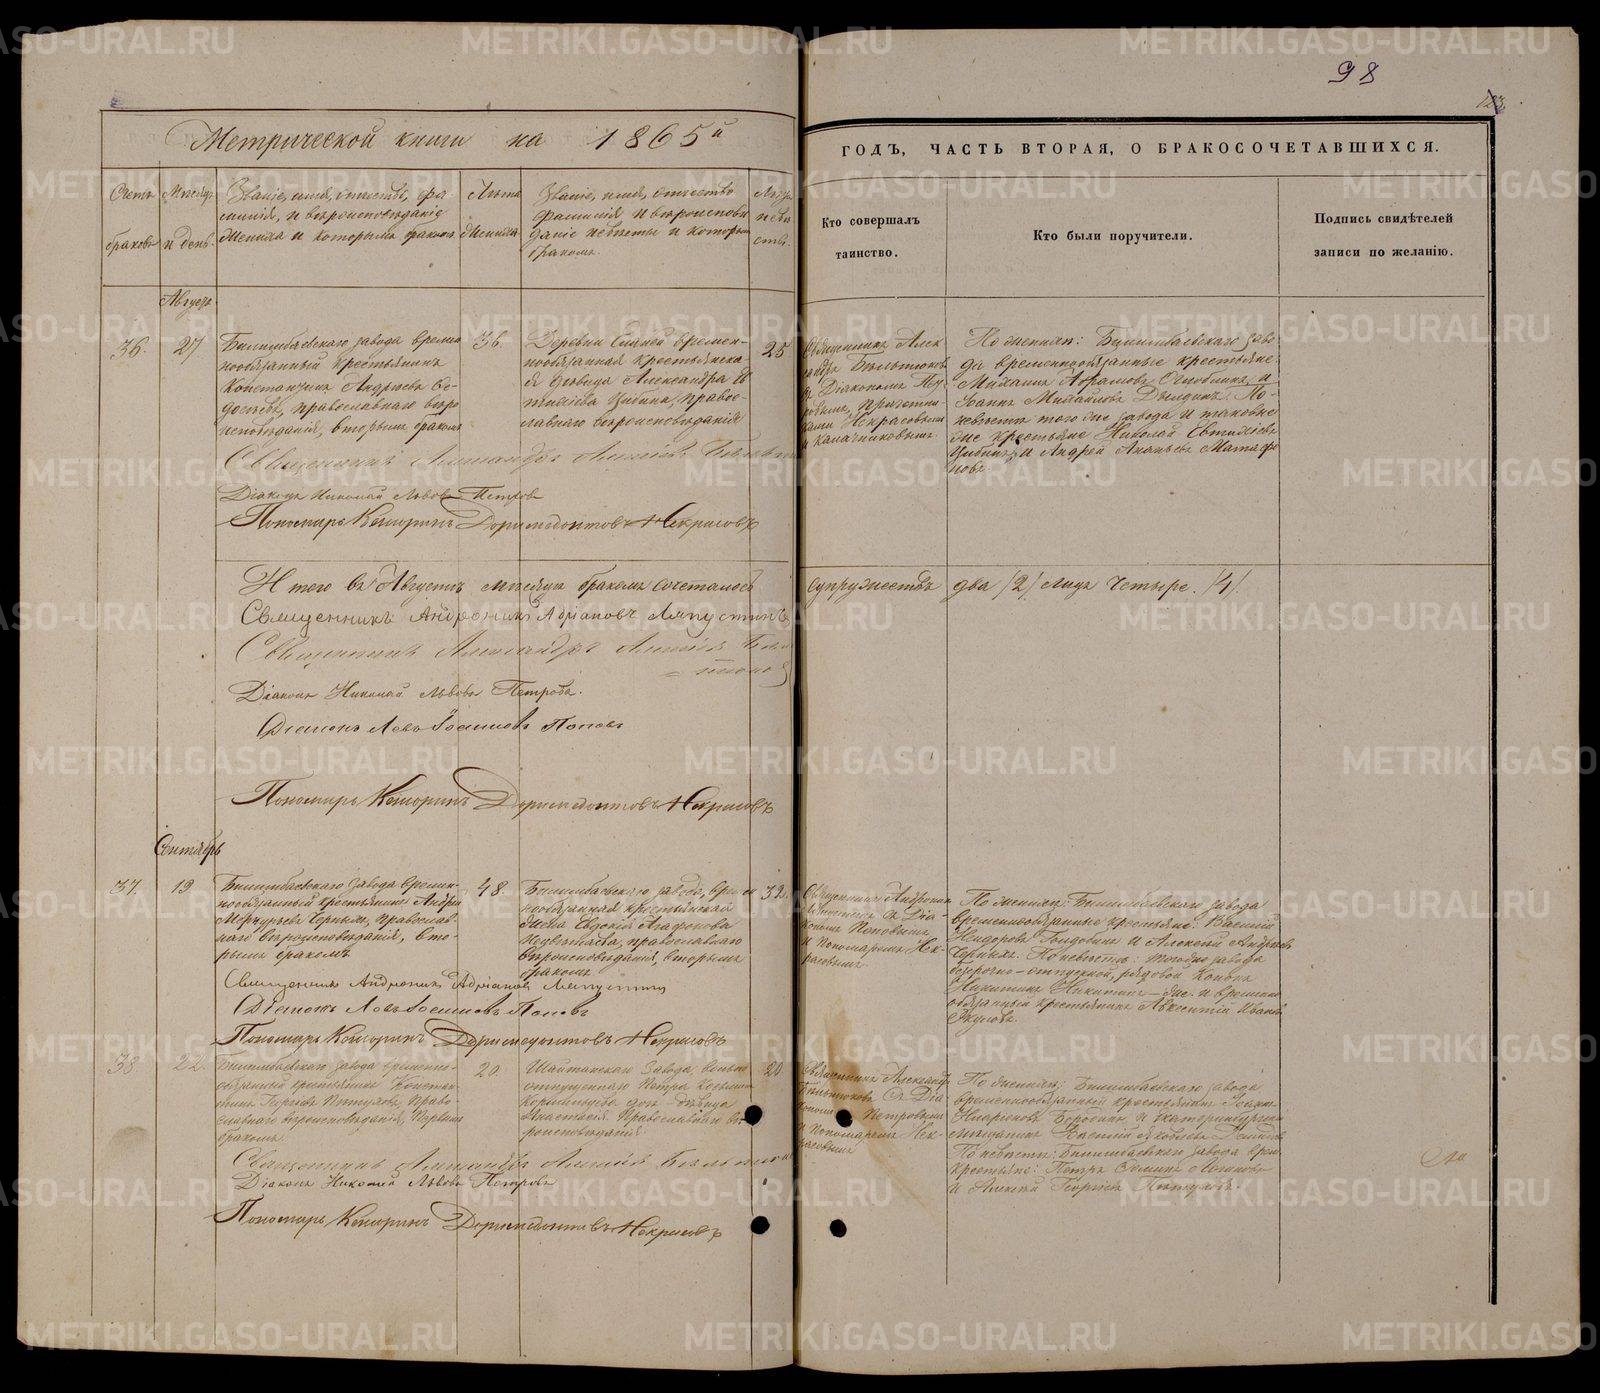 98
123
Метрической книги на 1865й
ГОДЪ, ЧАСТЬ ВТОРАЯ, О БРАКОСОЧЕТАВШИХСЯ.
Счетъ браковъ
Мѣсяцъ и день.
Званіе, имя, отчество, фа-
милія, и вѣроисповѣданіе
жениха и которымъ бракомъ
Лѣта жениха
Званіе, имя, отчество
фамилія и вѣроиспови
даніе невѣсты и которым
бракомъ.
Лѣта невѣ
сты.
Кто совершалъ
таинство.
Кто были поручители.
Подпись свидѣтелей
записи по желанію.
Августъ
36.
27
Билимбаевскаго завода времен
нообязанный крестьянинъ
Константинъ Андреевъ
православнаго вѣро
исповѣданія, вторымъ бракомъ
36.
Деревни времен-
нообязанная крестьянска-
я дѣвица Александра Ев
тихіева Цибина, правос-
лавнаго вѣроисповѣданія
25
Священникъ Алек
сандръ Бѣльтюковъ
съ Діакономъ Пе
тровымъ, причетни-
ками Некрасовымъ
и Калачниковымъ
По женихѣ: Билимбаевскаго заво
да временнообязанные крестьяне:
Михаилъ Абрамовъ и
Іоаннъ Михайловъ По
невѣстѣ того же завода и таковые
же крестьяне Николай Евтихіевъ
Цибинъ и Андрей Ананьевъ
Священникъ Александръ Алексіевъ
Діаконъ Николай Львовъ Петровъ
Пономарь Конторинъ Доримедонтовъ Некрасовъ
Итого въ Августѣ мѣсяцѣ бракомъ сочеталось
супружествъ два /2/ лицъ четыре. /4/.
Священникъ Андроникъ Адріановъ Ляпустинъ
Священникъ Александръ Алексіевъ Бѣль
тюковъ
Діаконъ Николай Львовъ Петровъ.
Діаконъ Левъ Іосифовъ Поповъ
Пономарь Доримедонтовъ Некрасовъ
Сентябрь
37.
19
Билимбаевскаго завода времен-
нообязанный крестьянинъ Андрей
Меркурьевъ Черныхъ, православ-
наго вѣроисповѣданія, вто-
рымъ бракомъ
48.
Билимбаевскаго завода, времен
нообязанная крестьянская
Евдокія Агафонова
православнаго
вѣроисповѣданія, вторымъ
бракомъ
32.
Священникъ Андроникъ
Ляпустинъ съ Діа-
кономъ Поповымъ
и Пономаремъ Нек-
расовымъ.
По женихѣ: Билимбаевскаго завода
временнообязанные крестьяне: Василій
и Алексѣй Андреевъ
Черныхъ. По невѣстѣ: тогоже завода
безсрочно-отпускной, рядовой
Никитинъ и временно
обязанный крестьянинъ Авксентій Ивановъ
Священникъ Андроникъ Адріановъ Ляпустинъ
Діаконъ Левъ Іосифовъ Поповъ
Пономарь Доримедонтовъ Некрасовъ
38
22.
Билимбаевскаго завода временно-
обязанный крестьянинъ Констан
тинъ Георгіевъ Пѣтуховъ, право-
славнаго вѣроисповѣданія, первымъ
бракомъ.
20.
Шайтанскаго завода, вольно
отпущеннаго Петра
дочь дѣвица
Анастасія, Православнаго вѣ
роисповѣданія.
20
Священникъ Александръ
Бѣльтюковъ съ Діа
кономъ Петровымъ
и Пономаремъ Нек-
расовымъ
По женихѣ: Билимбаевскаго завода
временнообязанный крестьянинъ
Бородинъ и Екатеринбургскій
мѣщанинъ Василій Яковлевъ
По невѣстѣ: Билимбаевскаго завода врем.
крестьяне: Петръ
и Алексѣй Георгіевъ Пѣтуховъ.
Священникъ Александръ Алексіевъ Бѣльтюковъ
Діаконъ Николай Львовъ Петровъ
Пономарь Доримедонтовъ Некрасовъ
METRIKI.GASO-URAL.RU